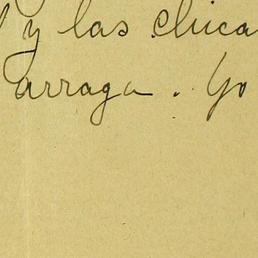 y las chica
arraga. Yo